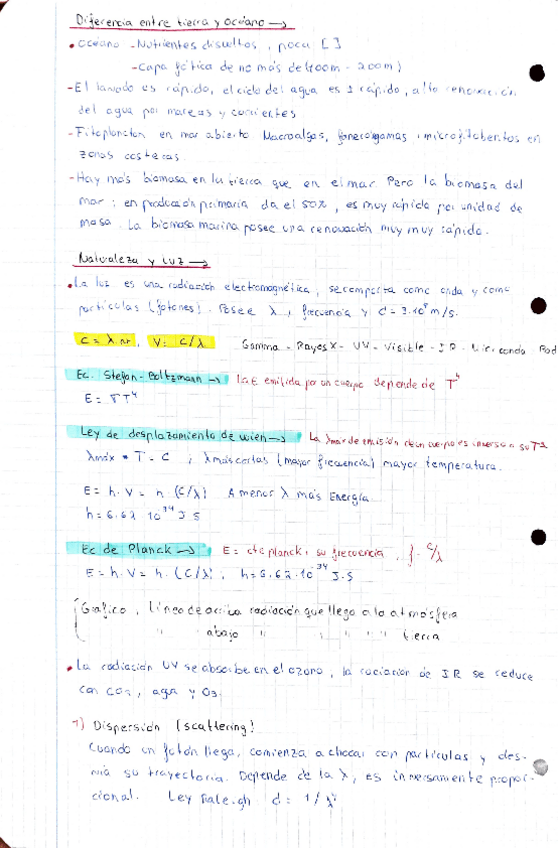 Diferencia entre tierra y océano →
• Océano - Nutrientes disueltos, poca [ ]
- Capa fótica de no más de (100m - 200m)
- El lavado es rápido, el ciclo del agua es rápido, alto renovación
del agua por mareas y corrientes
- Fitoplancton en mar abierto Macroalgas, fanerógamas i microfitobentos en
zonas costeras.
- Hay más biomasa en la tierra que en el mar. Pero la biomasa del
mar: en producción primaria da el 50%, es muy rápida por unidad de
masa. La biomasa marina posee una renovación muy muy rápida.
Naturaleza y luz →
• La luz es una radiación electromagnética, se comporta como onda y como
partículas (fotones). Posee λ, frecuencia y c = 3·10⁸ m/s.
C = λ · v, V: C/λ Gamma - Rayos X - UV - Visible - IR - Microonda Rad
Ec. Stefan-Boltzmann → La E emitida por un cuerpo depende de T⁴
E = σT⁴
Ley de desplazamiento de wien → La λmax de emisión de un cuerpo es inverso a su Tª
λmáx * T = C ; λ más cortas (mayor frecuencia) mayor temperatura.
E = h·V = h (C/λ) A menor λ más Energía
h = 6.62 10³⁴ J·S
Ec de Planck → E = cte planck · su frecuencia, f = c/λ
E = h·V = h·(C/λ); h = 6.62·10⁻³⁴ J·S
Grafico, línea de arriba radiación que llega a la atmósfera
" " abajo " " " " tierra
• La radiación UV se absorbe en el ozono, la radiación de IR se reduce
con CO₂, agua y O₃.
1) Dispersión (scattering)
Cuando un fotón llega, comienza a chocar con partículas y des-
vía su trayectoria. Depende de la λ, es inversamente propor-
cional. Ley Raleigh d = 1/λ⁴